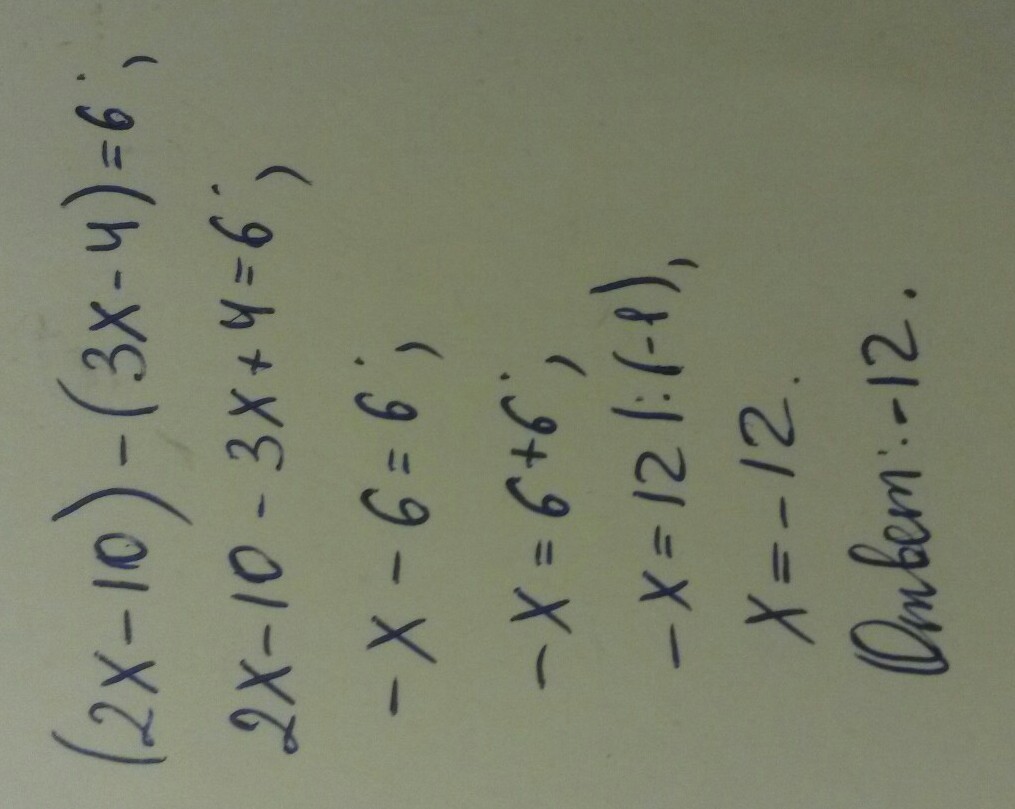 (2x-10)-(3x-4)=6;
2x-10-3x+4=6;
-x-6=6;
-x=6+6;
-x=12|:(-1),
x=-12.
Ответ:-12.